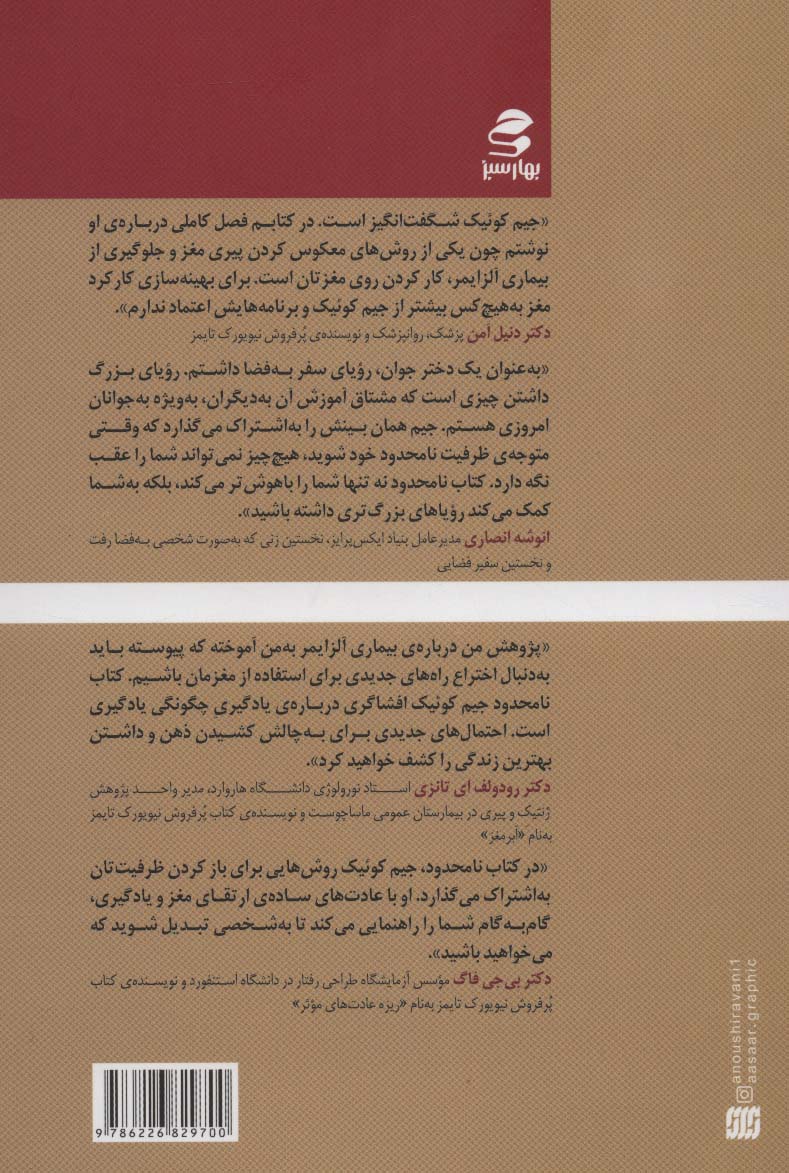 بهار سبز
«جیم کوئیک شگفت‌انگیز است. در کتابم فصل کاملی درباره‌ی او
نوشتم چون یکی از روش‌های معکوس کردن پیری مغز و جلوگیری از
بیماری آلزایمر، کار کردن روی مغزتان است. برای بهینه‌سازی کارکرد
مغز به‌هیچ‌کس بیشتر از جیم کوئیک و برنامه‌هایش اعتماد ندارم».
دکتر دنیل آمن پزشک، روانپزشک و نویسنده‌ی پُرفروش نیویورک تایمز
«به‌عنوان یک دختر جوان، رؤیای سفر به‌فضا داشتم. رؤیای بزرگ
داشتن چیزی است که مشتاق آموزش آن به‌دیگران، به‌ویژه به‌جوانان
امروزی هستم. جیم همان بینش را به‌اشتراک می‌گذارد که وقتی
متوجه‌ی ظرفیت نامحدود خود شوید، هیچ‌چیز نمی‌تواند شما را عقب
نگه دارد. کتاب نامحدود نه تنها شما را باهوش‌تر می‌کند، بلکه به‌شما
کمک می‌کند رؤیاهای بزرگ‌تری داشته باشید».
انوشه انصاری مدیرعامل بنیاد ایکس‌پرایز، نخستین زنی که به‌صورت شخصی به‌فضا رفت
و نخستین سفیر فضایی
«پژوهش من درباره‌ی بیماری آلزایمر به‌من آموخته که پیوسته باید
به‌دنبال اختراع راه‌های جدیدی برای استفاده از مغزمان باشیم. کتاب
نامحدود جیم کوئیک افشاگری درباره‌ی یادگیری چگونگی یادگیری
است. احتمال‌های جدیدی برای به‌چالش کشیدن ذهن و داشتن
بهترین زندگی را کشف خواهید کرد».
دکتر رودولف ای تانزی استاد نورولوژی دانشگاه هاروارد، مدیر واحد پژوهش
ژنتیک و پیری در بیمارستان عمومی ماساچوست و نویسنده‌ی کتاب پُرفروش نیویورک تایمز
به‌نام «اَبَرمغز»
«در کتاب نامحدود، جیم کوئیک روش‌هایی برای باز کردن ظرفیت‌تان
به‌اشتراک می‌گذارد. او با عادت‌های ساده‌ی ارتقای مغز و یادگیری،
گام‌به‌گام شما را راهنمایی می‌کند تا به‌شخصی تبدیل شوید که
می‌خواهید باشید».
دکتر بی‌جی فاگ مؤسس آزمایشگاه طراحی رفتار در دانشگاه استنفورد و نویسنده‌ی کتاب
پُرفروش نیویورک تایمز به‌نام «ریزه عادت‌های مؤثر»
anoushiravani1
aasaar.graphic
9 786226 829700